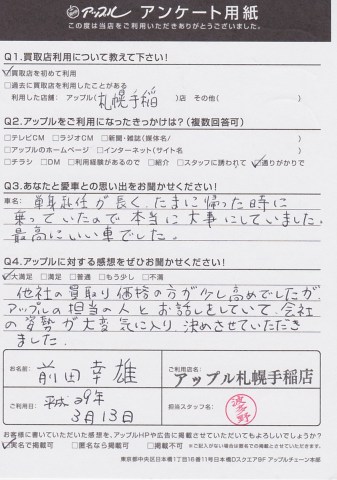 アップル アンケート用紙
この度は当店をご利用いただきありがとうございました。
Q1.買取店利用について教えて下さい!
☑買取店を初めて利用
□過去に買取店を利用したことがある
利用した店舗: アップル(札幌手稲)店 その他( )
Q2.アップルをご利用になったきっかけは?(複数回答可)
□テレビCM □ラジオCM □新聞・雑誌(媒体名/ )
□アップルのホームページ □インターネット(サイト名 )
□チラシ □DM □利用経験があるので □紹介 □スタッフに誘われて ☑通りがかりで
Q3.あなたと愛車との思い出をお聞かせください!
車名: 単身赴任が長く、たまに帰った時に
乗っていたので本当に大事にしていました。
最高にいい車でした。
Q4.アップルに対する感想をぜひお聞かせください!
☑大満足 □満足 □普通 □もう少し □不満
他社の買取り価格の方が少し高めでしたが、
アップルの担当の人とお話しをしていて、会社
の姿勢が大変気に入り、決めさせていただき
ました。
お名前: 前田幸雄
ご利用店名: アップル札幌手稲店
ご利用日: 平成29年
3月13日
担当スタッフ名: 波多野
お客様に書いていただいた感想を、アップルHPや広告に掲載させていただいてもよろしいでしょうか?
☑実名で掲載可 □匿名なら掲載可 □掲載不可 ※ご記入がない場合は掲載させていただく場合がございます。
東京都中央区日本橋1丁目16番11号日本橋Dスクエア9F アップルチェーン本部